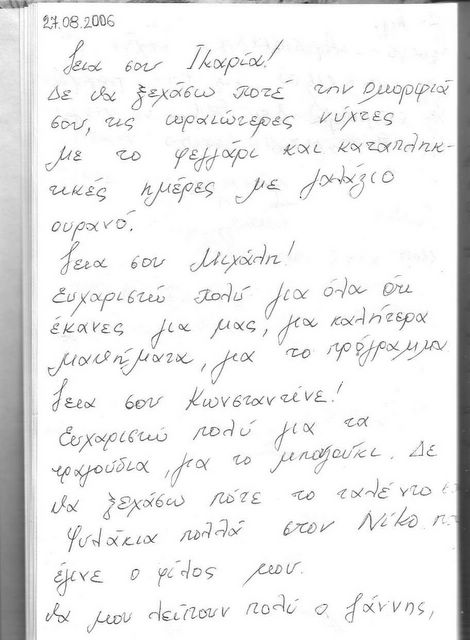 27.08.2006
Γεια σου Ικαρία!
Δε να ξεχάσω ποτέ την ομορφιά
σου, τις ωραιώτερες νύχτες
με το φεγγάρι και καταπληκ-
τικές ημέρες με γαλάζιο
ουρανό.
Γεια σου Μιχάλη!
Ευχαριστώ πολύ για όλα ότι
έκανες για μας, για καλήτερα
μαθήματα, για το πρόγραμμα
Γεια σου Κωνσταντίνε!
Ευχαριστώ πολύ για τα
τραγούδια, για το μπαζούκι. Δε
να ξεχάσω πότε το ταλέντο
Φυλάκια πολλά στον Νίκο
έγινε ο φίλος μου.
Να μου λείπουν πολύ ο Γάννης,